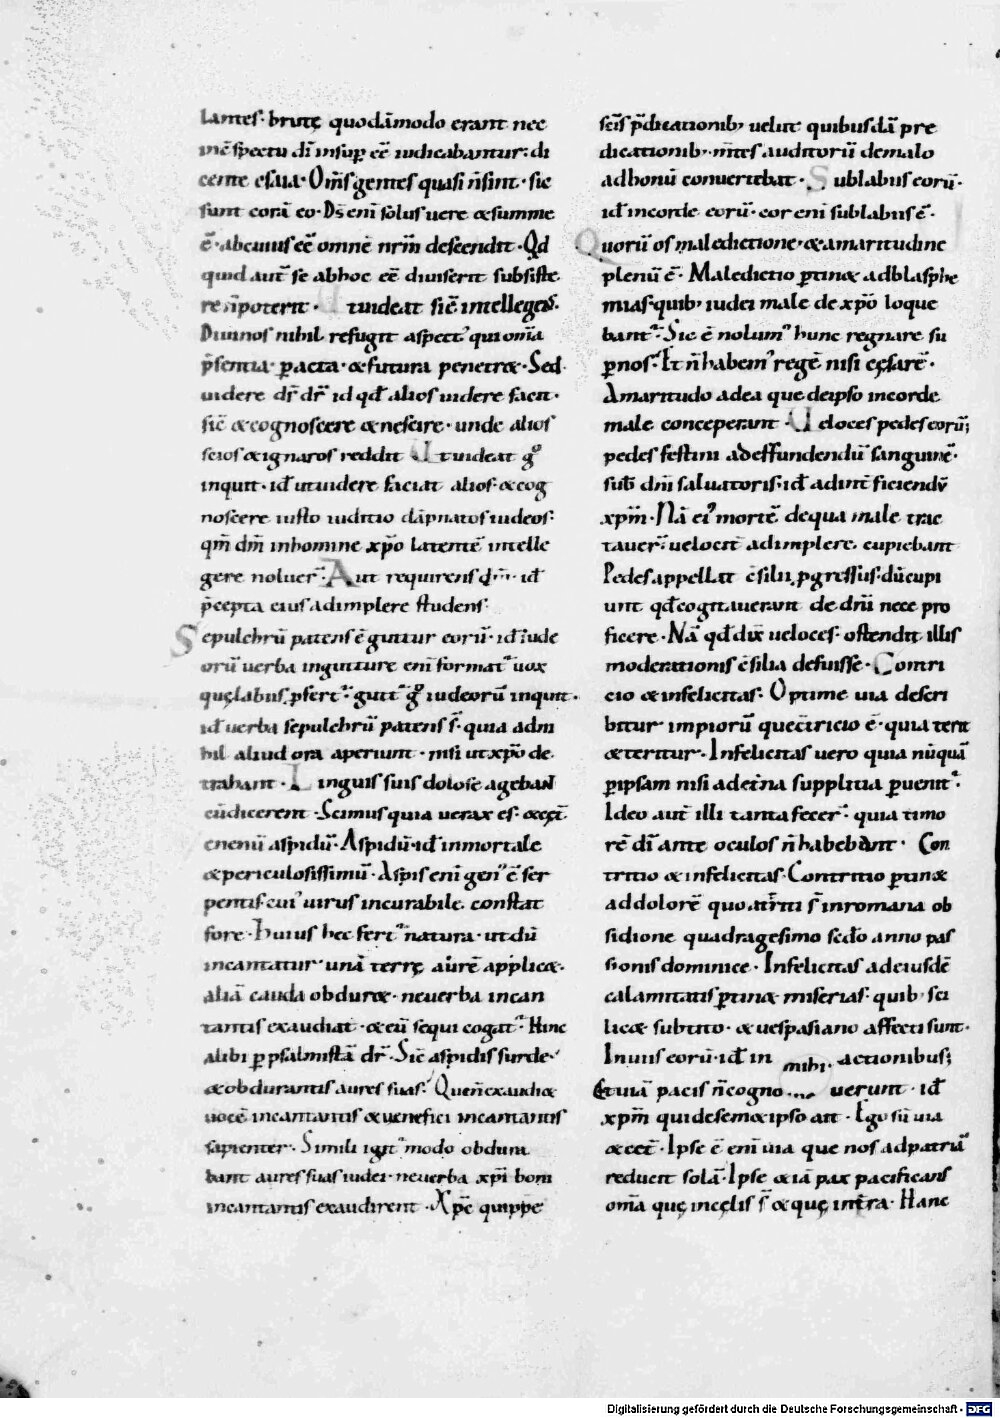 lantes· brutę quodāmodo erant nec
inc̄spectu dī insup̱ eē iudicabantur: di
cente esaia· Om̄s gentes quasi n̄sint· sic
sunt corā eo· Ds̄ enī solus uere & summe
ē· ab cuius eē omne nr̄m descendit· Qd
quid aut̄ se ab hoc eē diuiserit subsiste
re n̄poterit· tuideat sic̄ intellegens·
Diuinos nihil refugit aspect᾽ qui om̄ia
p̄sentia· p̱acta· & futura penetr&· Sed
uidere dr̄ dr̄ id qđ alios uidere facit·
sic̄ & cognoscere & nescire· unde alios
scios & ignaros reddit U tuideat gͦ
inquit· id̄ ut uidere faciat alios· & cog
noscere iusto iuditio dāpnatos iudeos·
qm̄ dm̄ in homine xp̄o latentē intelle
gere noluer̄· Aut requirens dm̄· id̄
p̄cepta eius adimplere studens·
Sepulchrū patens ē guttur eorū· id̄ iude
orū uerba in gutture enī format᾽ uox
quęlabus p̱fert᾽· gutt᾽ gͦ iudeorū inquit·
id̄ uerba sepulchrū patens s̄· quia adni
hil aliud ora aperiunt· nisi ut xp̄o de
trahant· Linguis suis dolose agebant
cūdicerent· Scimus quia uerax es· & cęt̄·
enenū aspidū· Aspidū· id̄ inmortale
& periculosissimū· Aspis enī gen᾽ ē ser
pentis cui᾽ uirus incurabile constat
fore· Huius hec fert᾽ natura· ut dū
incantatur unā terrę aurē applic&·
aliā cauda obdur&· ne uerba incan
tantis exaudiat· & eū sequi cogat᾽· Hinc
alibi p̱ psalmistā dr̄· Sic̄ aspidis surde·
& obdurantis aures suas· Quen̄exaudi&
uocē incantantis & uenefici incantantis
sapienter· Simili igit᾽ modo obdura
bant aures suas iudei· ne uerba xp̄i boni
incantantis exaudirent· Xp̄c quippe
sc̄is p̄dicationib; uelut quibusdā pre
dicationib· mtes auditorū de malo
ad bonū conuertebat· Sublabus eorū·
id̄ in corde eorū· cor enī sub labus ē·
Quorū os maledictione· & amaritudine
plenū ē· Maledictio p̱tin& ad blasphe
mias· quib; iudei male de xp̄o loque
bant᾽· Sic ē nolum᾽ hunc regnare su
p̱ nos· Et n̄habem᾽ regē nisi cęsarē·
Amaritudo ad ea que de ipso in corde
male conceperant· Ueloces pedes eorū;
pedes festini ad effundendū sanguinē·
sub̄ dn̄i saluatoris: id̄ ad int̄ficiendū
xp̄m· Nā ei᾽ mortē de qua male trac
tauer̄· uelocit̄ adimplere cupiebant
Pedes appellat c̄silii p̱gressus· dū cupi
unt qđ cogitauerant de dn̄i nece pro
ficere· Nā qđ dix̄ ueloces· ostendit illis
moderationis c̄silia defuisse· Contri
cio & infelicitas· Optime uia descri
bitur impiorū que c̄tricio ē· quia terit
& teritur· Infelicitas uero quia nūquā
p̱ ipsam nisi ad et̄na supplitia p̱uenit᾽·
Ideo aut̄ illi tanta fecer̄· quia timo
rē dī ante oculos n̄habebant· Con
tritio & infelicitas· Contritio p̱tin&
ad dolorē quo attriti s̄ in romana ob
sidione quadragesimo scd̄o anno pas
sionis dominice· Infelicitas ad eiusdē
calamitatis p̱tin& miserias· quib; sci
lic& subtito· & uespasiano affecti sunt·
In uiis eorū· id̄ in mihi· actionibus;
Et uiā pacis n̄cogno... uerunt· id̄
xp̄m qui de sem&ipso ait· Ego sū uia
& cet̄· Ipse ē enī uia que nos ad patriā
reducit solā· Ipse & iā pax pacificans
om̄a quę in cęlis s̄ & quę in tr̄a· Hanc
Digitalisierung gefördert durch die Deutsche Forschungsgemeinschaft - DFG